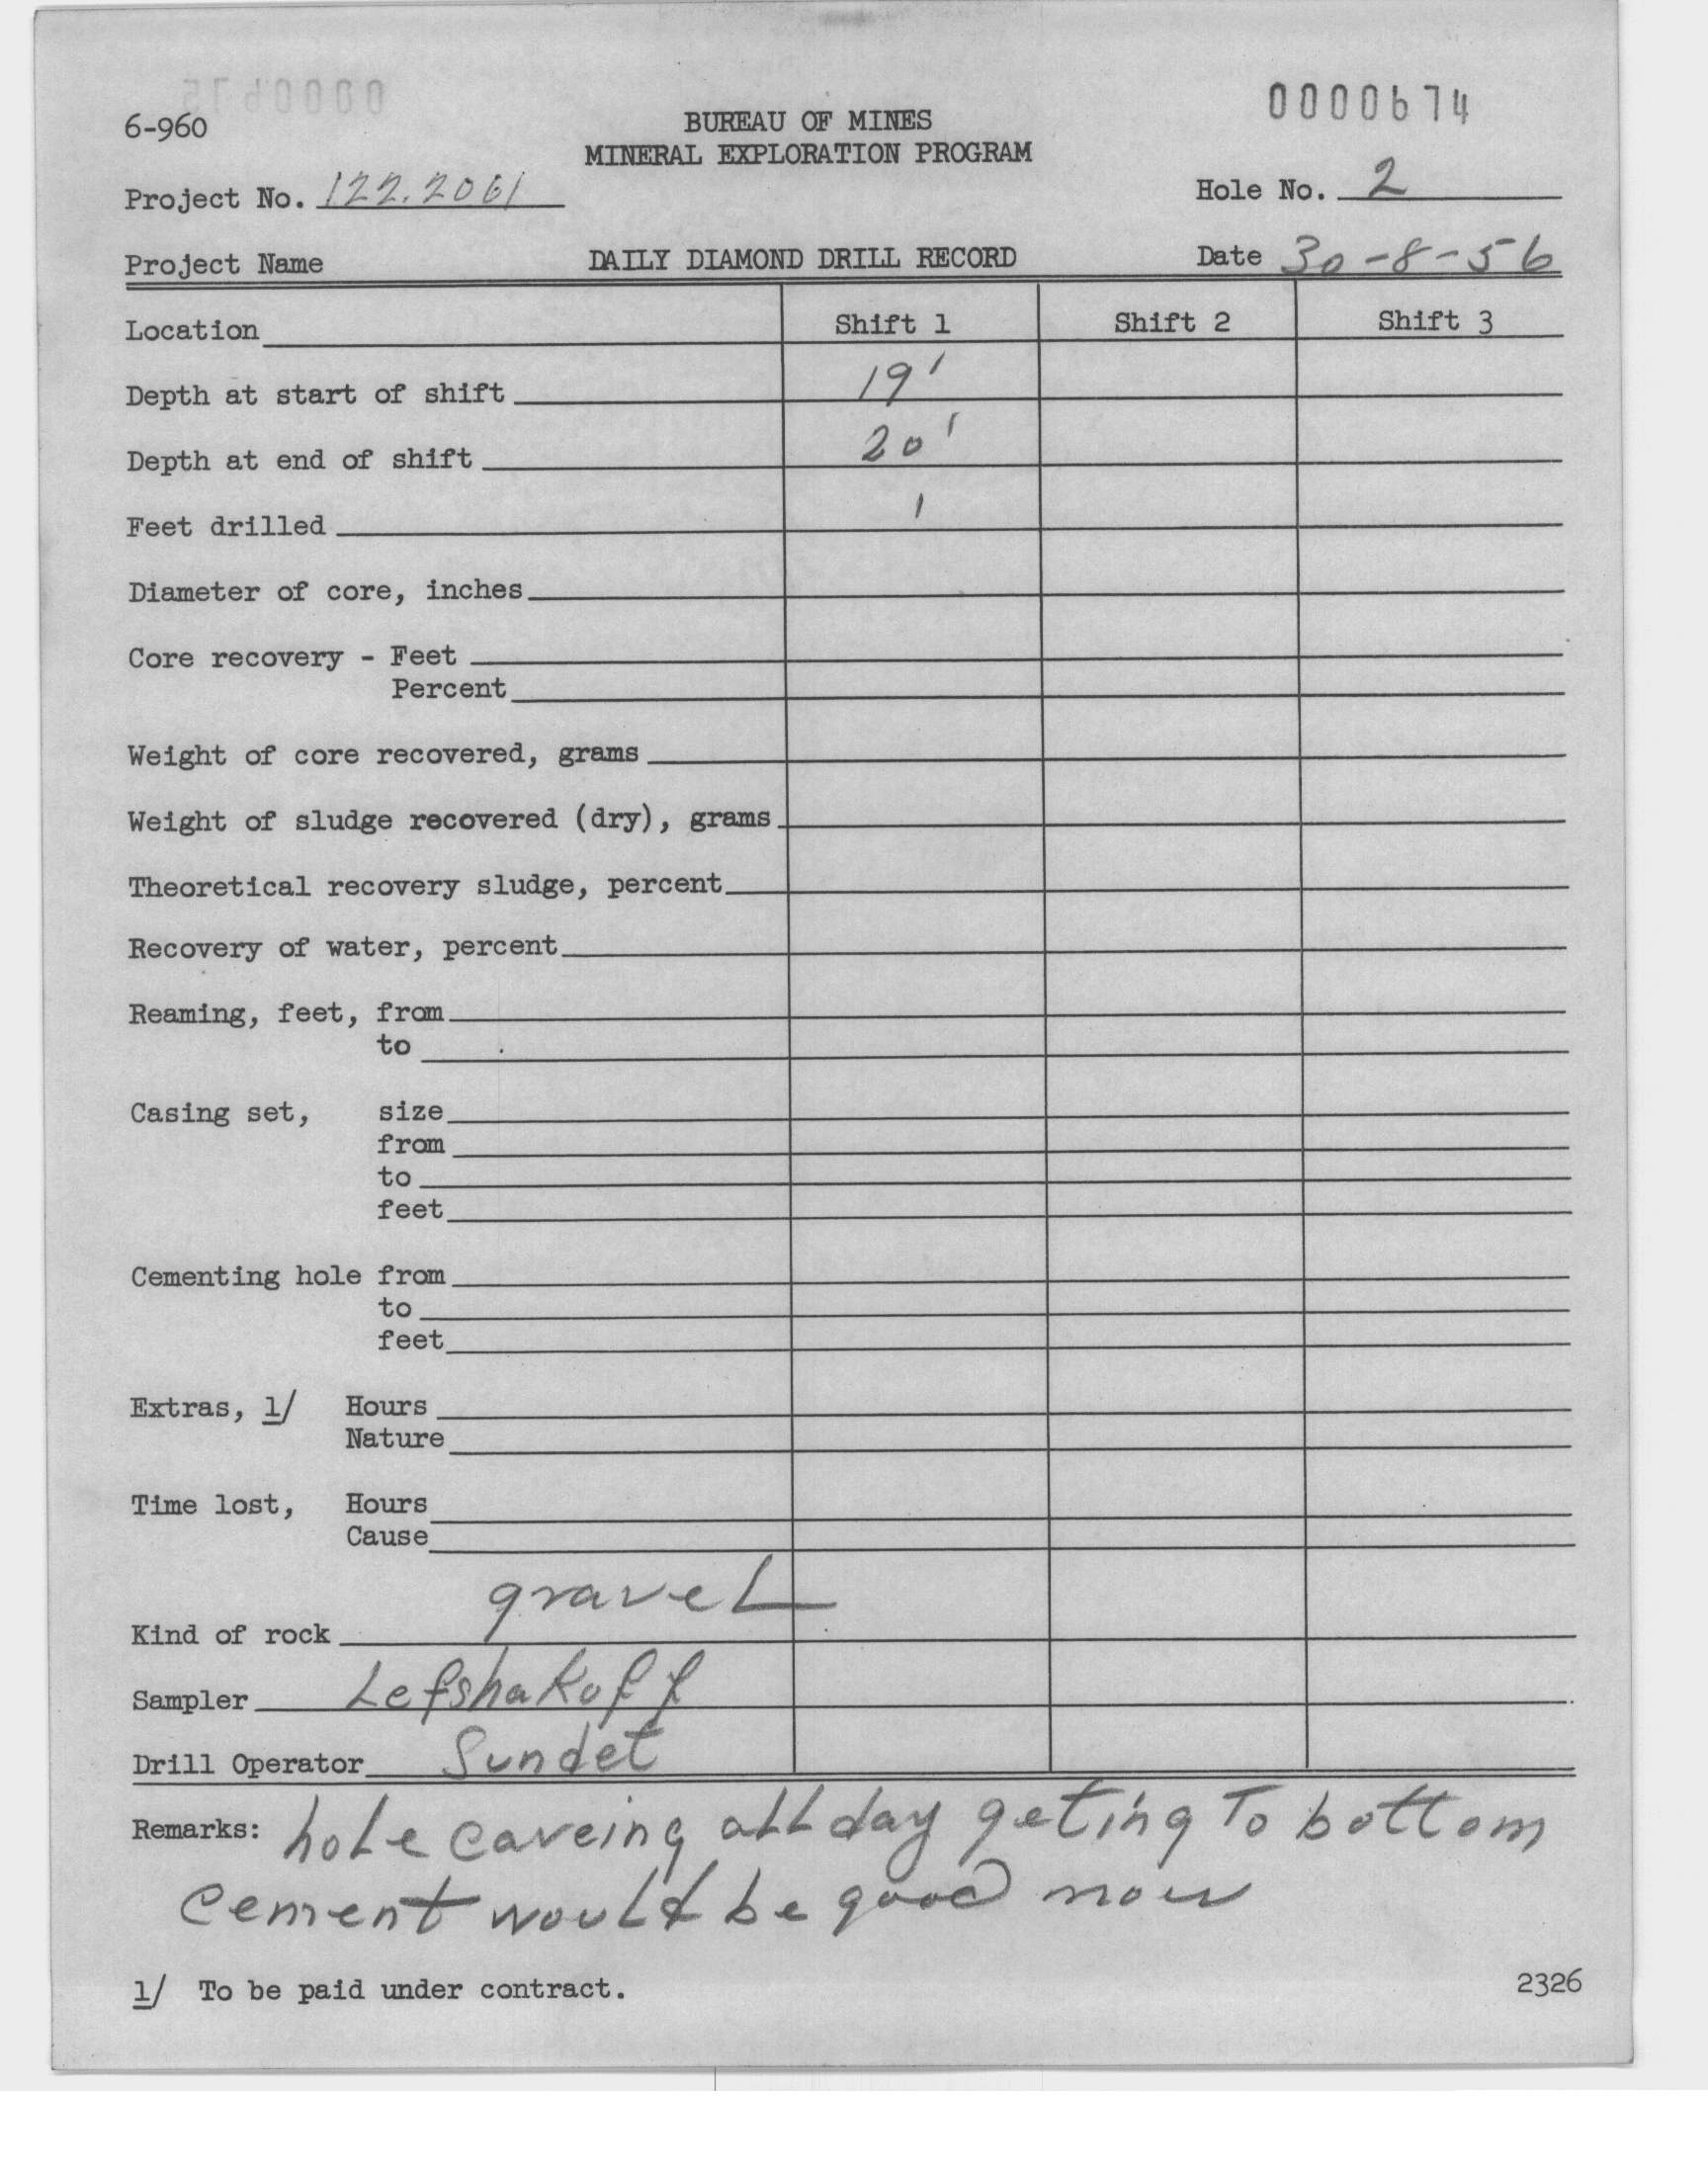 0000674
6-960
BUREAU OF MINES
MINERAL EXPLORATION PROGRAM
Project No. 122.2061
Hole No. 2
Project Name
DAILY DIAMOND DRILL RECORD
Date 30-8-56
Location Shift 1 Shift 2 Shift 3
Depth at start of shift 19'
Depth at end of shift 20'
Feet drilled 1
Diameter of core, inches
Core recovery - Feet
Percent
Weight of core recovered, grams
Weight of sludge recovered (dry), grams
Theoretical recovery sludge, percent
Recovery of water, percent
Reaming, feet, from
to
Casing set, size
from
to
feet
Cementing hole from
to
feet
Extras, 1/ Hours
Nature
Time lost, Hours
Cause
Kind of rock gravel
Sampler Lefshakoff
Drill Operator Sundet
Remarks: hole caveing all day geting to bottom
cement would be good now
1/ To be paid under contract.
2326